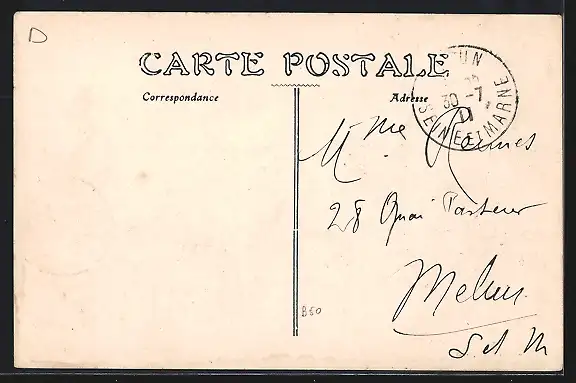 D
CARTE POSTALE
Correspondance
Adresse
UN
30 -7
11
SEINE ET MARNE
Mme
28 Quai Pasteur
Melun
S et M
B50